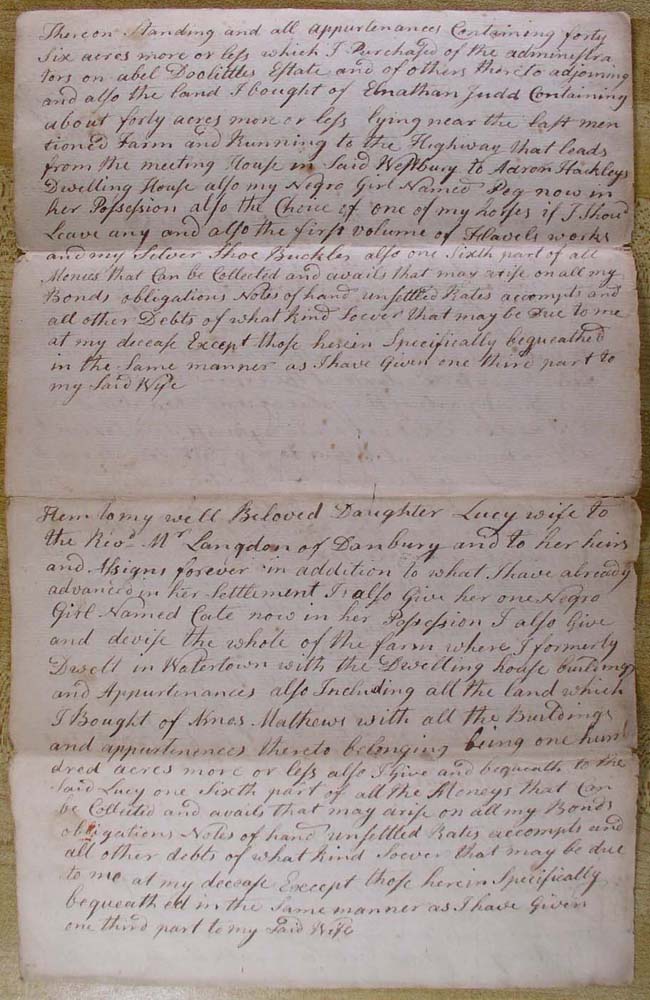 Thereon Standing and all appurtenances Containing forty
Six acres more or less which I Purchased of the administra
tors on abel Doolittles Estate and of others thereto adjoining
and also the land I bought of Elnathan Judd Containing
about forty acres more or less lying near the last men
tioned Farm and Running to the Highway that leads
from the meeting House in Said Westbury to Aaron Hackleys
Dwelling House also my Negro Girl Named Peg now in
her Possession also the Choice of one of my horses if I Shoud
Leave any and also the first volume of Flavels works
and my Silver Shoe Buckles also one Sixth part of all
Monies that Can be Collected and avails that may arise on all my
Bonds obligations Notes of hand unsettled Rates accompts and
all other Debts of what kind Soever that may be Due to me
at my decease Except those herein Specifically bequeathed
in the Same manner as I have Given one third part to
my Said Wife
Item to my well Beloved Daughter Lucy wife to
the Revd Mr Langdon of Danbury and to her heirs
and Assigns forever in addition to what I have already
advanced in her Settlement I also Give her one Negro
Girl Named Cate now in her Possession I also Give
and devise the whole of the farm where I formerly
Dwelt in Watertown with the Dwelling house buildings
and Appurtenances also Including all the land which
I Bought of Amos Mathews with all the Buildings
and appurtinences thereto belonging being one hun
dred acres more or less also I Give and bequeath to the
Said Lucy one Sixth part of all the Moneys that Can
be Collected and avails that may arise on all my Bonds
obligations Notes of hand unsettled Rates accompts and
all other debts of what kind Soever that may be due
to me at my decease Except those herein Specifically
bequeathed in the Same manner as I have Given
one third part to my Said Wife